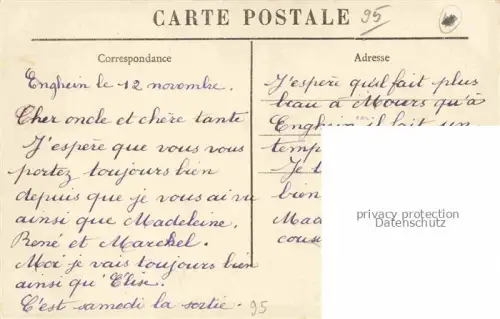 CARTE POSTALE
95
Correspondance
Enghein le 12 novembre.
Cher oncle et chère tante
J'espère que vous vous
portez toujours bien
depuis que je vous ai vu
ainsi que Madeleine.
René et Marchel.
Moi je vais toujours bien
ainsi qu'Elise.
C'est samedi la sortie.
95
Adresse
J'espère qu'il fait plus
beau à Mours qu'à
Enghein il fait un
temp
Je
bien
Mad
cous
privacy protection
Datenschutz